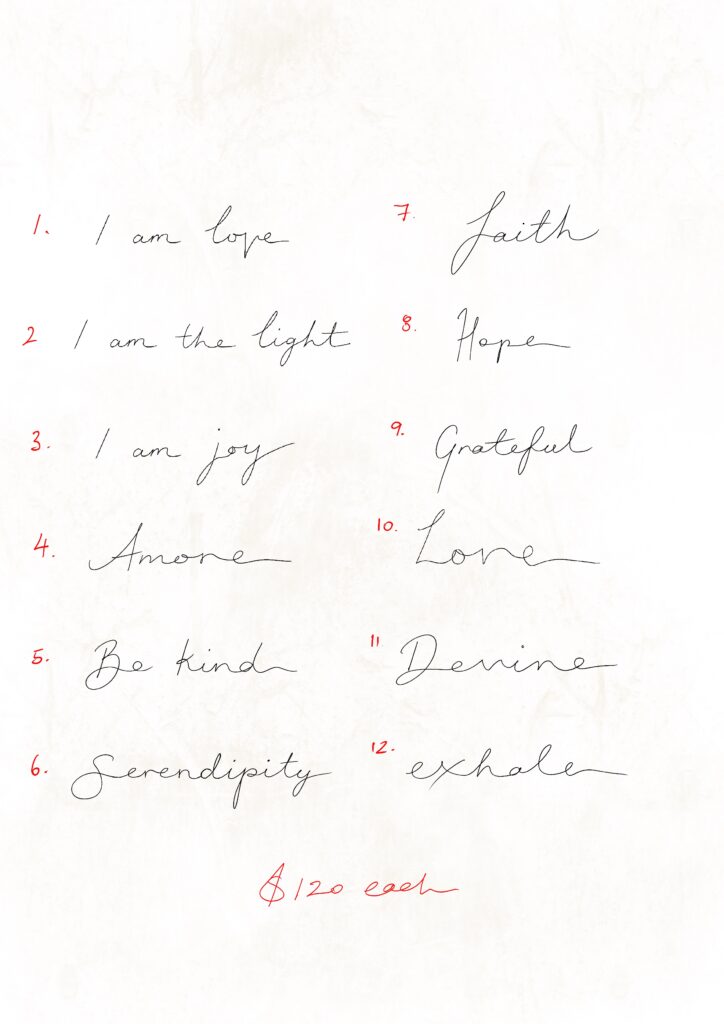 1. I am love
2 I am the light
3. I am joy
4. Amore
5. Be kind
6. Serendipity
7. Faith
8. Hope
9. Grateful
10. Love
11 Devine
12. exhale
$120 each